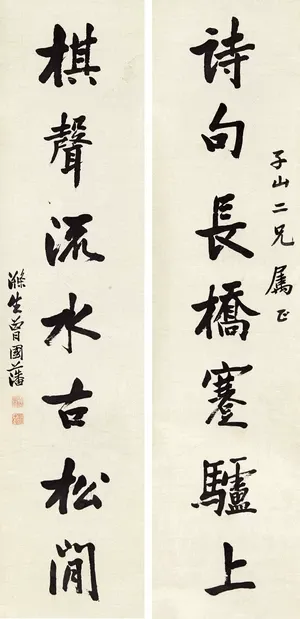 子山二兄属正
詩句長橋蹇驢上
棋聲流水古松間
滌生曾國藩